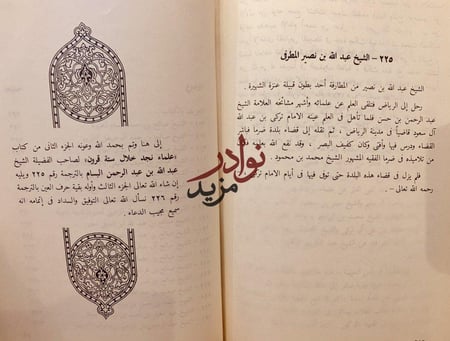 ٢٢٥ - الشيخ عبد الله بن نصير المطرفي
الشيخ عبد الله بن نصير من المطارفة أحد بطون قبيلة عنزة الشهيرة.
رحل إلى الرياض فتلقى العلم عن علمائه وأشهر مشائخه العلامة الشيخ
عبد الرحمن بن حسن فلما تأهل في العلم عينه الامام تركي بن عبد الله آل
سعود قاضياً في مدينة الرياض، ثم نقله إلى قضاء بلدة ضرما فباشر
القضاء ودرس فيها وأفتى وكان كفيف البصر، وقد نفع الله به
من تلاميذه في ضرما الفقيه المشهور الشيخ محمد بن محمود.
فلم يزل في قضاء هذه البلدة حتى توفي فيها في أيام الامام تركي
رحمه الله تعالى -.
إلى هنا وتم بحمد الله وعونه الجزء الثاني من كتاب
«علماء نجد خلال ستة قرون» لصاحب الفضيلة الشيخ
عبد الله بن عبد الرحمن البسام بالترجمة رقم ٢٢٥ ويليه
إن شاء الله تعالى الجزء الثالث وأوله بقية حرف العين بالترجمة
رقم ٢٢٦ نسأل الله تعالى التوفيق والسداد في إتمامه انه
سميع مجيب الدعاء.
نوادر
مزيد